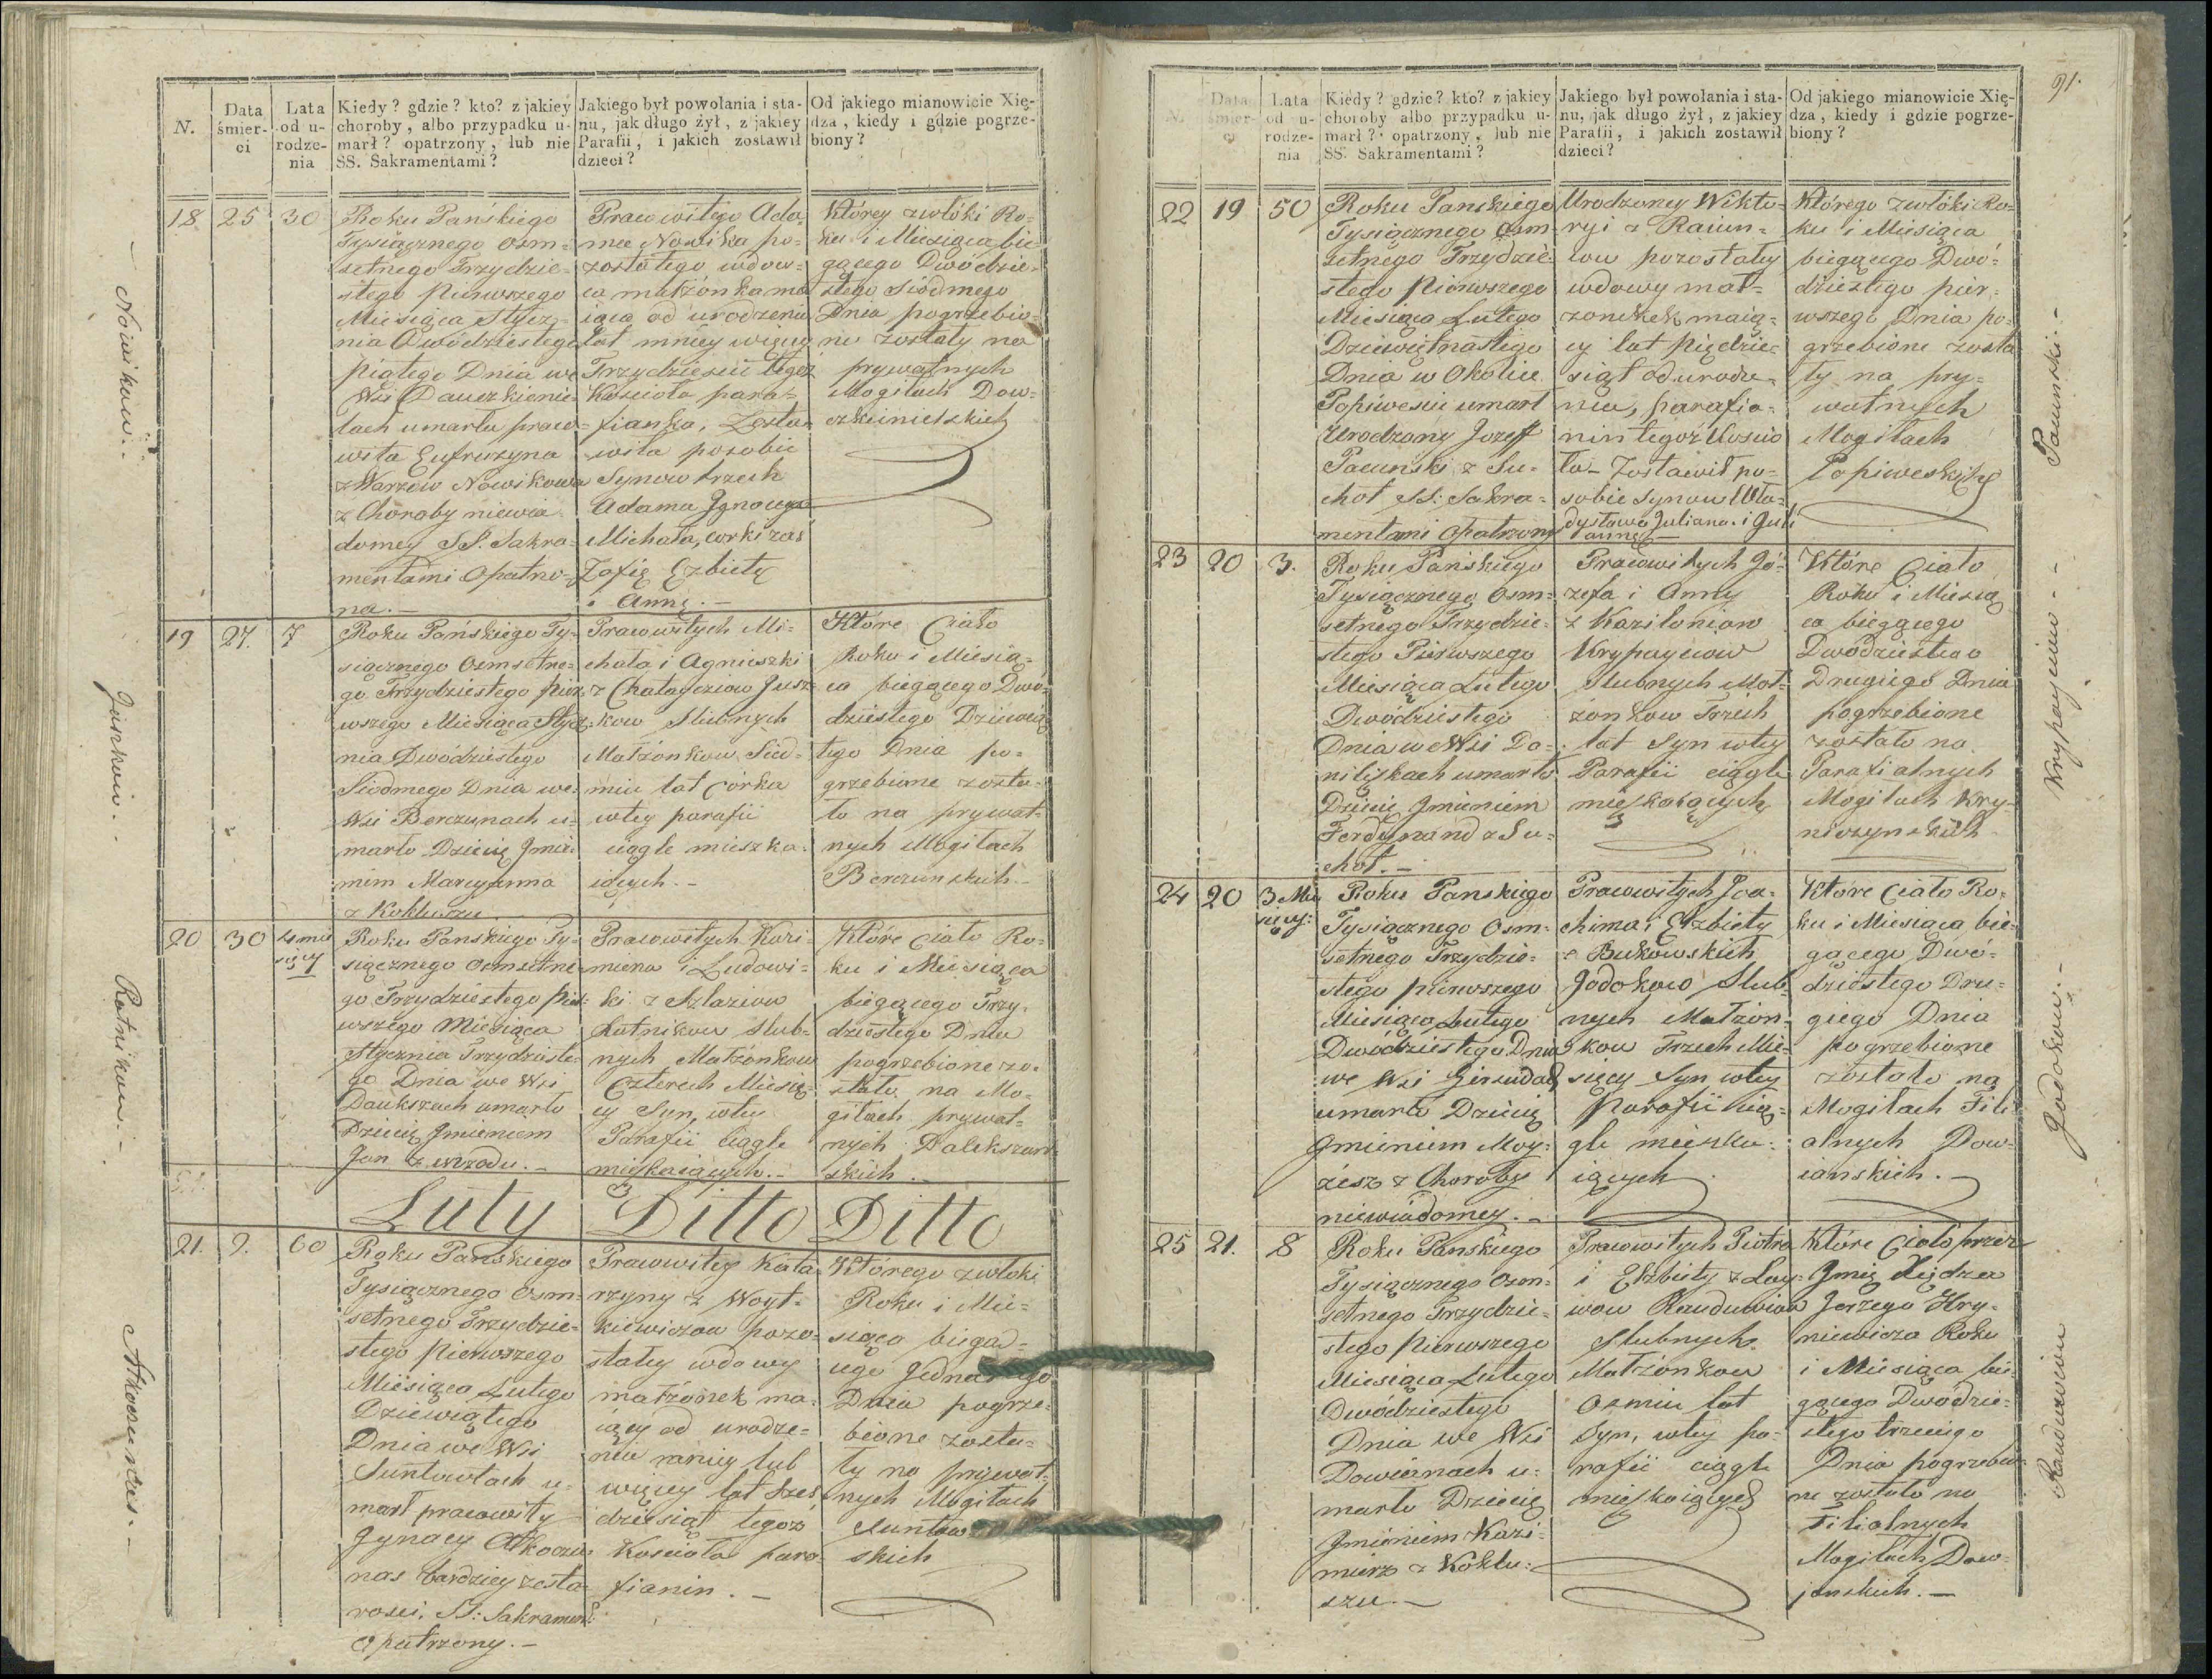 N.
Data śmierci
Lata od urodzenia
Kiedy? gdzie? kto? z jakiey
choroby, albo przypadku u-
marł? opatrzony, lub nie
SS. Sakramentami?
Jakiego był powołania i sta-
nu, jak długo żył, z jakiey
Parafii, i jakich zostawił
dzieci?
Od jakiego mianowicie Xię-
dza, kiedy i gdzie pogrze-
biony?
18
25
30
Roku Pańskiego
Tysiącznego Osm=
setnego Trzydzie=
stego Pierwszego
Miesiąca Stycz=
nia Dwódziestego
piątego Dnia we
Wsi Dauczkienie=
tach umarła praco=
wita Eufrozyna
z Warzew Nowikowa
z Choroby niewia=
domey SS. Sakra=
mentami Opatrzo=
na.—
Pracowitego Ada=
ma Nowika po=
zostałego wdow=
ca małżonka ma
iąca od urodzenia
lat mniey więcey
Trzydzieści tegoż
Kościoła para=
fianka, Zosta=
wiła posobie
Synow trzech
Adama Jgnacego
Michała, corki zaś
Zofię Elżbietę
i Annę.—
Którey zwłóki Ro=
ku i Miesiąca bie
gącego Dwódzie=
stego Siódmego
Dnia pogrzebio=
ne zostały na
prywatnych
Mogiłach Dow=
czkienielskich
— Nowikow.—
19
27.
7
Roku Pańskiego Ty=
siącznego Osmsetne=
go Trzydziestego pier=
wszego Miesiąca Stycz=
nia Dwódziestego
Siodmego Dnia we
Wsi Berczunach u=
marło Dziecię Jmie=
niem Maryanna
z Kokluszu.
Pracowitych Mi=
chała i Agnieszki
z Chałayziow Jusz=
kow Slubnych
Małżonkow Sied=
miu lat Córka
wtey parafii
ciągle mieszka=
iących.—
Które Ciało
Roku i Miesią=
ca biegącego Dwó=
dziestego Dziewią
tego Dnia po=
grzebione zosta=
ło na prywat=
nych Mogiłach
Berczunskich.—
Juszkow.—
20
30
4 mie
sięcy
Roku Panskiego Ty=
siącznego osmsetne
go Trzydziestego Pier=
wszego Miesiąca
Stycznia Trzydzieste=
go Dnia we Wsi
Daukszach umarło
Dziecię Jmieniem
Jan z wrzodu.—
Pracowitych Kazi=
mierza i Ludowi=
ki z Szlaziow
Ratnikow Slub=
nych Małżonkow
Czterech Miesię=
cy Syn, wtey
Parafii Ciągle
mieszkaiących.—
Które Ciało Ro=
ku i Miesiąca
biegącego Trzy=
dziestego Dnia
pogrzebione zo=
stało na Mo=
giłach prywat=
nych
skich.—
Ratnikow.—
Luty Ditto Ditto
21.
9.
60
Roku Pańskiego
Tysiącznego Osm=
setnego Trzydzie=
stego Pierwszego
Miesiąca Lutego
Dziewiątego
Dnia we Wsi
Suntowtach u=
marł pracowity
Jgnacy
nas bardziey zesta=
rości, SS: Sakramen:
Opatrzony.—
Pracowitey Kata=
rzyny z Woyt=
kiewiczow pozo=
stałey wdowy
małżonek ma=
iący od urodze=
nia mniey lub
więcey lat Sześ
dziesiąt tegoż
Kościoła para=
fianin.—
Którego zwłoki
Roku i Mie=
siąca biegą=
cego
Dnia pogrze=
bione zosta=
ły na prywat=
nych Mogiłach
skich
91.
N.
Data śmierci
Lata od urodzenia
Kiedy? gdzie? kto? z jakiey
choroby albo przypadku u-
marł? opatrzony, lub nie
SS. Sakramentami?
Jakiego był powołania i sta-
nu, jak długo żył, z jakiey
Parafii, i jakich zostawił
dzieci?
Od jakiego mianowicie Xię-
dza, kiedy i gdzie pogrze-
biony?
22
19
50
Roku Panskiego
Tysiącznego Osm
setnego Trzydzie=
stego Pierwszego
Miesiąca Lutego
Dziewiętnastego
Dnia w Okolicy
Popiwesiu umarł
Urodzony Jozeff
Pacunski z Su=
chot SS: Sakra=
mentami Opatrzony
Urodzoney Wikto=
ryi z
low pozostałey
wdowy mał=
żonek maią=
cy lat Pięćdzie=
siąt od urodze=
nia, parafia=
nin tegoż Kościo
ła— Zostawił po=
sobie Synow Wła=
dysława Juliana i Juli
annę—
Którego zwłóki Ro=
ku i Miesiąca
biegącego Dwó=
dziestego pier=
wszego Dnia po=
grzebione zosta
ły na pry=
watnych
Mogiłach
Popiweskich
Pacunski.—
23
20
3.
Roku Pańskiego
Tysiącznego Osm=
setnego Trzydzie=
stego Pierwszego
Miesiąca Lutego
Dwódziestego
Dnia we Wsi Da=
niliszkach umarło
Dziecię Jmieniem
Ferdynand z Su=
chot.—
Pracowitych Jó=
zefa i Anny
z Kaziloniow
Krypaycow
Slubnych Mał=
żonkow Trzech
lat Syn wtey
Parafii ciągle
mieszkaiących
Które Ciało
Roku i Miesią
ca biegącego
Dwódziestego
Drugiego Dnia
pogrzebione
zostało na
Parafialnych
Mogiłach Kry=
niczynskich
Krypaycow.—
24
20
3 Mie
sięcy:
Roku Panskiego
Tysiącznego Osm=
setnego Trzydzie=
stego pierwszego
Miesiąca Lutego
Dwódziestego Dnia
we Wsi
umarło Dziecię
Jmieniem Moy=
żesz z Choroby
niewiadomey.—
Pracowitych Joa=
chima i Elżbiety
z Bukowskich
Jodokow Slub=
nych Małżon=
kow Trzech Mie=
sięcy Syn wtey
Parafii cią=
gle mieszka=
iących
Które Ciało Ro=
ku i Miesiąca bie=
gącego Dwó=
dziestego Dru=
giego Dnia
pogrzebione
zostało na
Mogiłach Fili
alnych Dow=
ianskich.—
Jodokow.—
25
21.
8
Roku Pańskiego
Tysiącznego Osm=
setnego Trzydzie=
stego Pierwszego
Miesiąca Lutego
Dwódziestego
Dnia we Wsi
Dowianach u=
marło Dziecię
Jmieniem Kazi=
mierz z Koklu=
szu.—
Pracowitych Piotra
i Elżbiety z Lay=
wow Rauduwiow
Slubnych
Małżonkow
Osmiu lat
Syn, wtey pa=
rafii ciągle
mieszkaiących
Które Ciało przez
Jmię Xiędza
Jerzego Hry=
niewicza Roku
i Miesiąca bie=
gącego Dwódzie=
stego trzeciego
Dnia pogrzebio=
ne zostało na
Filialnych
Mogiłach Dow=
janskich.—
Rauduwiow